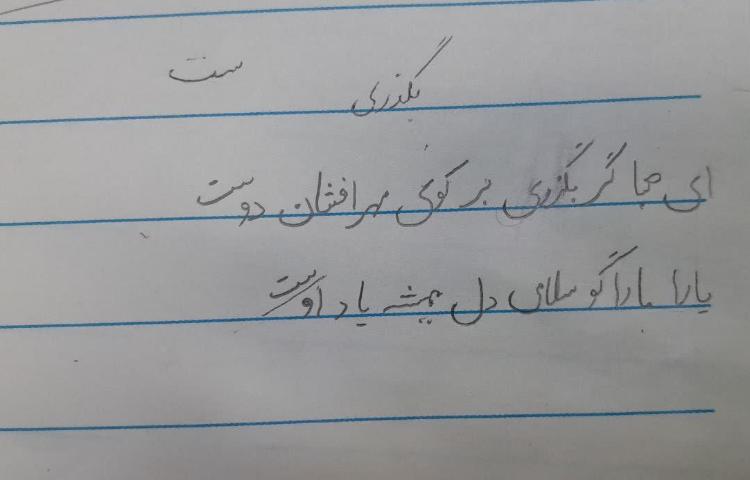 ست
بگذری
ای صبا گر بگذری بر کوی مهر افشان دوست
یارا ما را گو سلامی دل همیشه یاد اوست